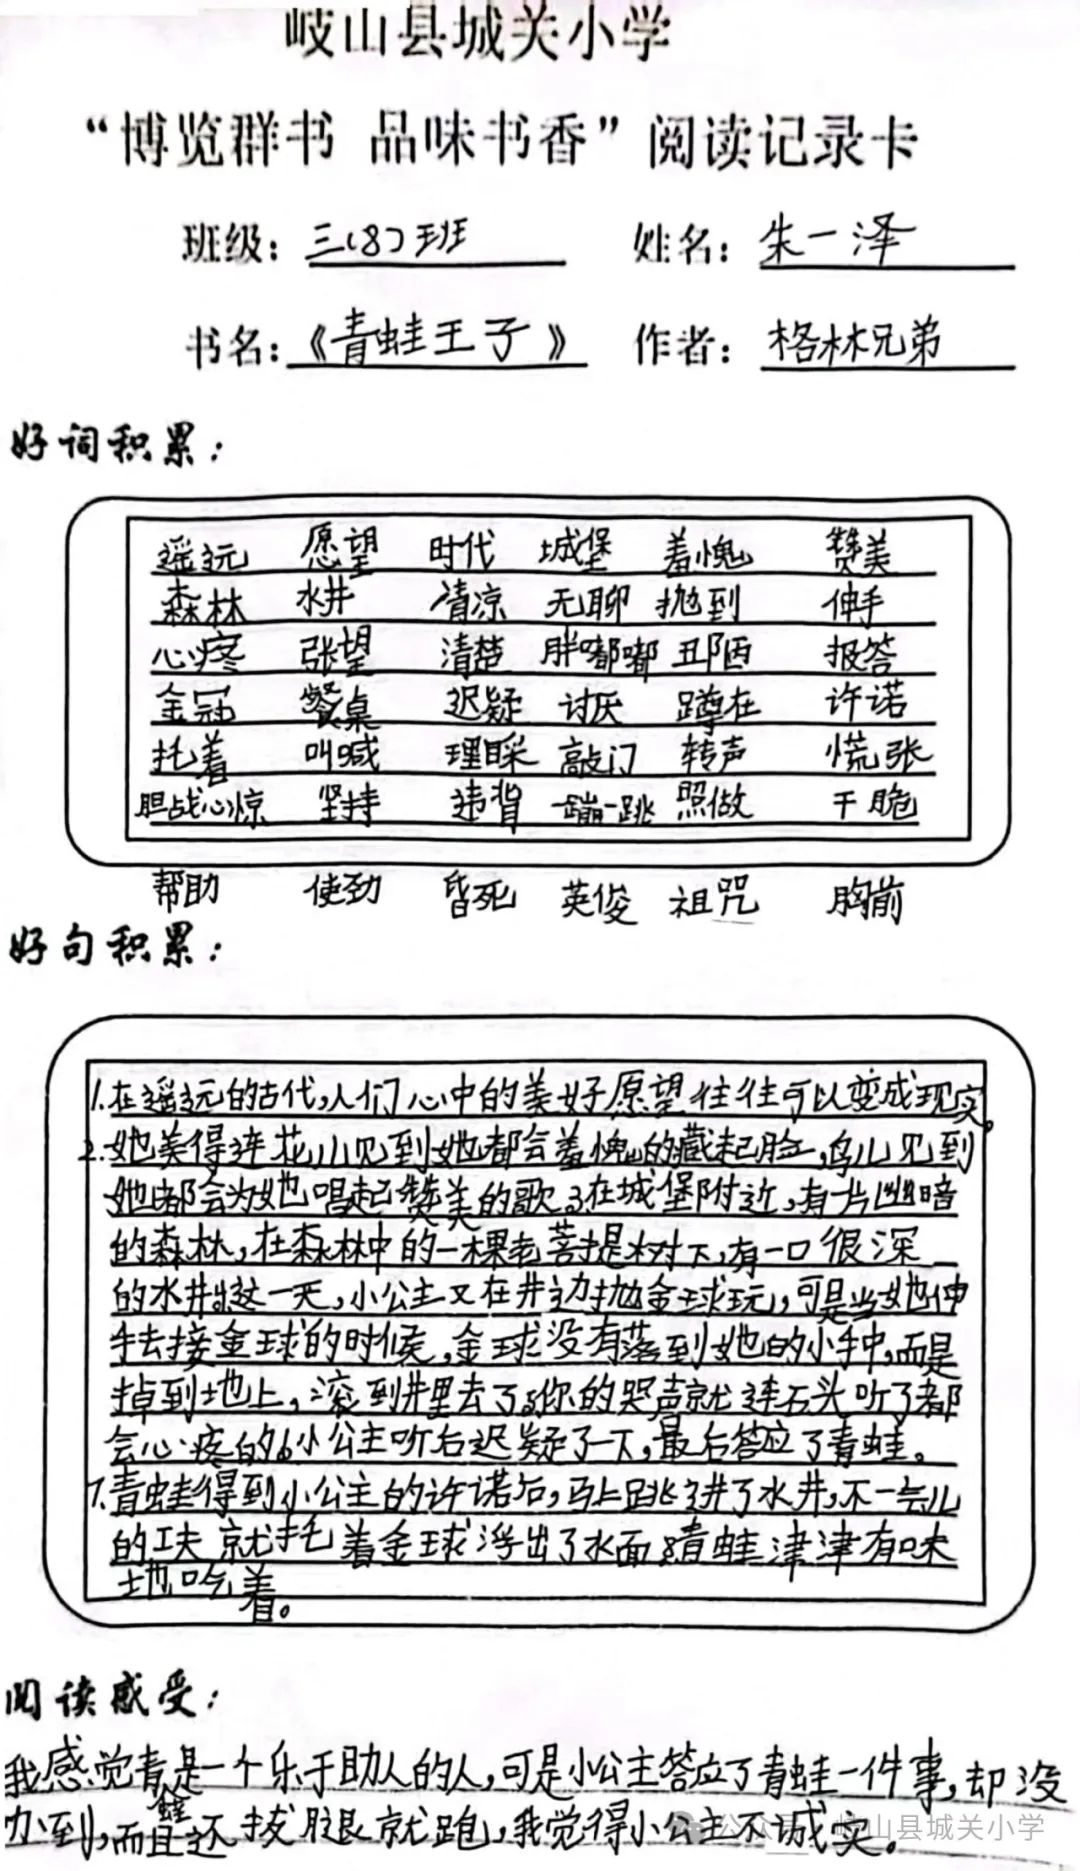 岐山县城关小学
“博览群书 品味书香”阅读记录卡
班级：三（8）班 姓名：朱一泽
书名：《青蛙王子》 作者：格林兄弟
好词积累：
遥远 愿望 时代 城堡 羞愧 赞美
森林 水井 清凉 无聊 抛到 伸手
心疼 张望 清楚 胖嘟嘟 丑陋 报答
金冠 餐桌 迟疑 讨厌 蹲在 许诺
托着 叫喊 理睬 敲门 转声 慌张
胆战心惊 坚持 违背 一蹦一跳 照做 干脆
帮助 使劲 昏死 英俊 祖咒 胸前
好句积累：
1.在遥远的古代，人们心中的美好愿望往往可以变成现实。
2.她美得连花儿见到她都会羞愧的藏起脸，鸟儿见到
她都会为她唱起赞美的歌。3.在城堡附近，有一片幽暗
的森林，在森林中的一棵老菩提树下，有一口很深
的水井。4.这一天，小公主又在井边抛金球玩，可是当她伸
手去接金球的时候，金球没有落到她的小手中，而是
掉到地上，滚到井里去了。5.你的哭声就连石头听了都
会心疼的。6.小公主听后迟疑了一下，最后答应了青蛙。
7.青蛙得到小公主的许诺后，马上跳进了水井，不一会儿
的工夫就托着金球浮出了水面。8.青蛙津津有味
地吃着。
阅读感受：
我感觉青蛙是一个乐于助人的人，可是小公主答应了青蛙一件事，却没
办到，而且还拔腿就跑，我觉得小公主不诚实。
公众号·岐山县城关小学